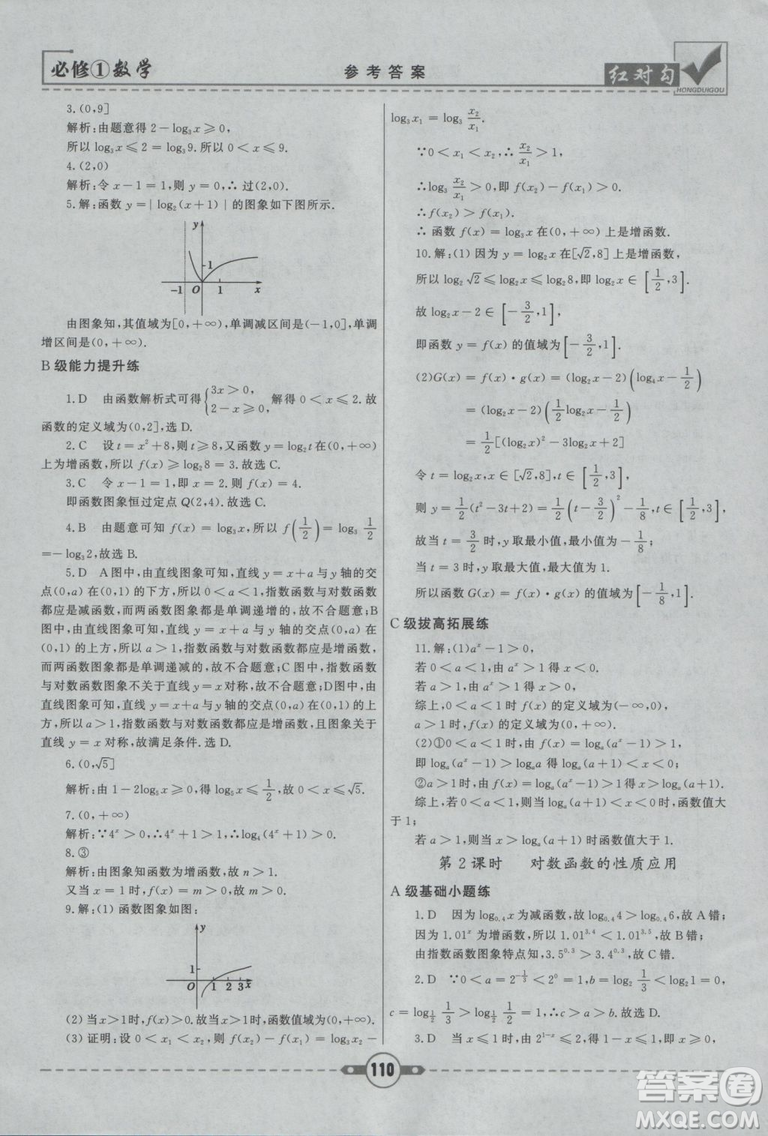 必修①数学
参考答案
红对勾
HONGDUIGOU
3.(0,9]
解析:由题意得 2-log₃x≥0,
所以 log₃x≤2=log₃9. 所以 0<x≤9.
4.(2,0)
解析:令 x-1=1,则 y=0,∴ 过(2,0).
5.解:函数 y=|log₂(x+1)|的图象如下图所示.
y
1
-1 O 1 x
由图象知,其值域为[0,+∞),单调减区间是(-1,0],单调
增区间是(0,+∞).
B 级能力提升练
1.D 由函数解析式可得{3x>0, 2-x≥0, 解得 0<x≤2.故
函数的定义域为(0,2],选 D.
2.C 设 t=x²+8,则 t≥8,又函数 y=log₂t在(0,+∞)
上为增函数,所以 f(x)≥log₂8=3.故选 C.
3.C 令 x-1=1,即 x=2.则 f(x)=4.
即函数图象恒过定点 Q(2,4).故选 C.
4.B 由题意可知 f(x)=log₃x,所以 f(1/2)=log₃ 1/2
=-log₃2,故选 B.
5.D A图中,由直线图象可知,直线 y=x+a与 y 轴的交
点(0,a)在(0,1)的下方,所以 0<a<1,指数函数与对数函数
都应是减函数,而两函数图象都是单调递增的,故不合题意;B图
中,由直线图象可知,直线 y=x+a与 y 轴的交点(0,a)在
(0,1)的上方,所以 a>1,指数函数与对数函数都应是增函数,
而两函数图象都是单调递减的,故不合题意;C图中,指数函数
与对数函数图象不关于直线 y=x对称,故不合题意;D图中,由
直线图象可知,直线 y=x+a与 y 轴的交点(0,a)在(0,1)的上
方,所以 a>1,指数函数与对数函数都应是增函数,且图象关于
直线 y=x 对称,故满足条件.选 D.
6.(0,√5]
解析:由 1-2log₅x≥0,得 log₅x≤1/2,故 0<x≤√5.
7.(0,+∞)
解析:∵4ˣ>0,∴4ˣ+1>1,∴log₂(4ˣ+1)>0.
8.③
解析:由图象知函数为增函数,故 n>1.
又当 x=1时,f(x)=m>0,故 m>0.
9.解:(1)函数图象如图:
y
1
O 1 2 3 x
(2)当 x>1时,f(x)>0;当 0<x<1时,f(x)<0.
(3)证明:设 0<x₁<x₂,则 f(x₂)-f(x₁)=log₃x₂-
log₃x₁=log₃ x₂/x₁.
∵0<x₁<x₂,∴x₂/x₁>1,
∴log₃ x₂/x₁>0,即 f(x₂)-f(x₁)>0.
∴f(x₂)>f(x₁).
∴ 函数 f(x)=log₃x在(0,+∞)上是增函数.
10.解:(1)因为 y=log₂x在[√2,8]上是增函数,
所以 log₂√2≤log₂x≤log₂8,即 log₂x∈[1/2,3].
故 log₂x-2∈[-3/2,1],
即函数 y=f(x)的值域为[-3/2,1].
(2)G(x)=f(x)·g(x)=(log₂x-2)(log₄x-1/2)
=(log₂x-2)(1/2log₂x-1/2)
=1/2[(log₂x)²-3log₂x+2]
令 t=log₂x,x∈[√2,8],t∈[1/2,3],
则 y=1/2(t²-3t+2)=1/2(t-3/2)²-1/8,t∈[1/2,3],
故当 t=3/2时,y取最小值,最小值为-1/8;
当 t=3时,y取最大值,最大值为1.
所以函数 G(x)=f(x)·g(x)的值域为[-1/8,1].
C 级拔高拓展练
11.解:(1)aˣ-1>0,得 aˣ>1.
若 0<a<1,由 aˣ>1得 x<0;
若 a>1,由 aˣ>1得 x>0.
综上,0<a<1时,f(x)的定义域为(-∞,0),
a>1时,f(x)的定义域为(0,+∞).
(2)①0<a<1时,f(x)>1=logₐa,
即 aˣ-1<a,aˣ<a+1,则 x>logₐ(a+1).
②a>1时,f(x)>1,则 x>logₐ(a+1).
综上,若 0<a<1,则当 logₐ(a+1)<x<0时,函数值大
于1;
若 a>1,则当 x>logₐ(a+1)时函数值大于1.
第2课时 对数函数的性质应用
A 级基础小题练
1.D 因为 log₀.₄x为减函数,故 log₀.₄4>log₀.₄6,故 A错;
因为 1.01ˣ为增函数,所以 1.01³·⁴<1.01³·⁵,故 B 错;
由指数函数图象特点知,3.5⁰·³>3.4⁰·³,故 C错.
2.D ∵0<a=2^(-1/3)<2⁰=1,b=log₂ 1/3<log₂1=0,
c=log_(1/2) 1/3>log_(1/2) 1/2=1,∴c>a>b.故选 D.
3.D 当 x≤1时,由 2¹⁻ˣ≤2得 1-x≤1,∴0≤x≤1;
110
答案圈
MXQE.COM